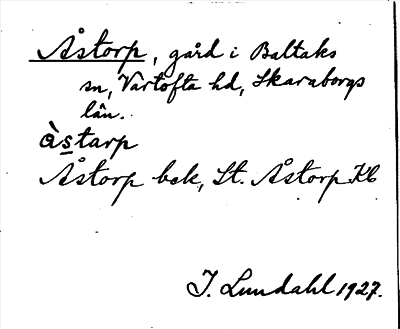 Åstorp, gård i Baltaks
sn, Vartofta hd, Skaraborgs
län.
àstarp
Åstorp bok, St. Åstorp Kb
I. Lundahl 1927.